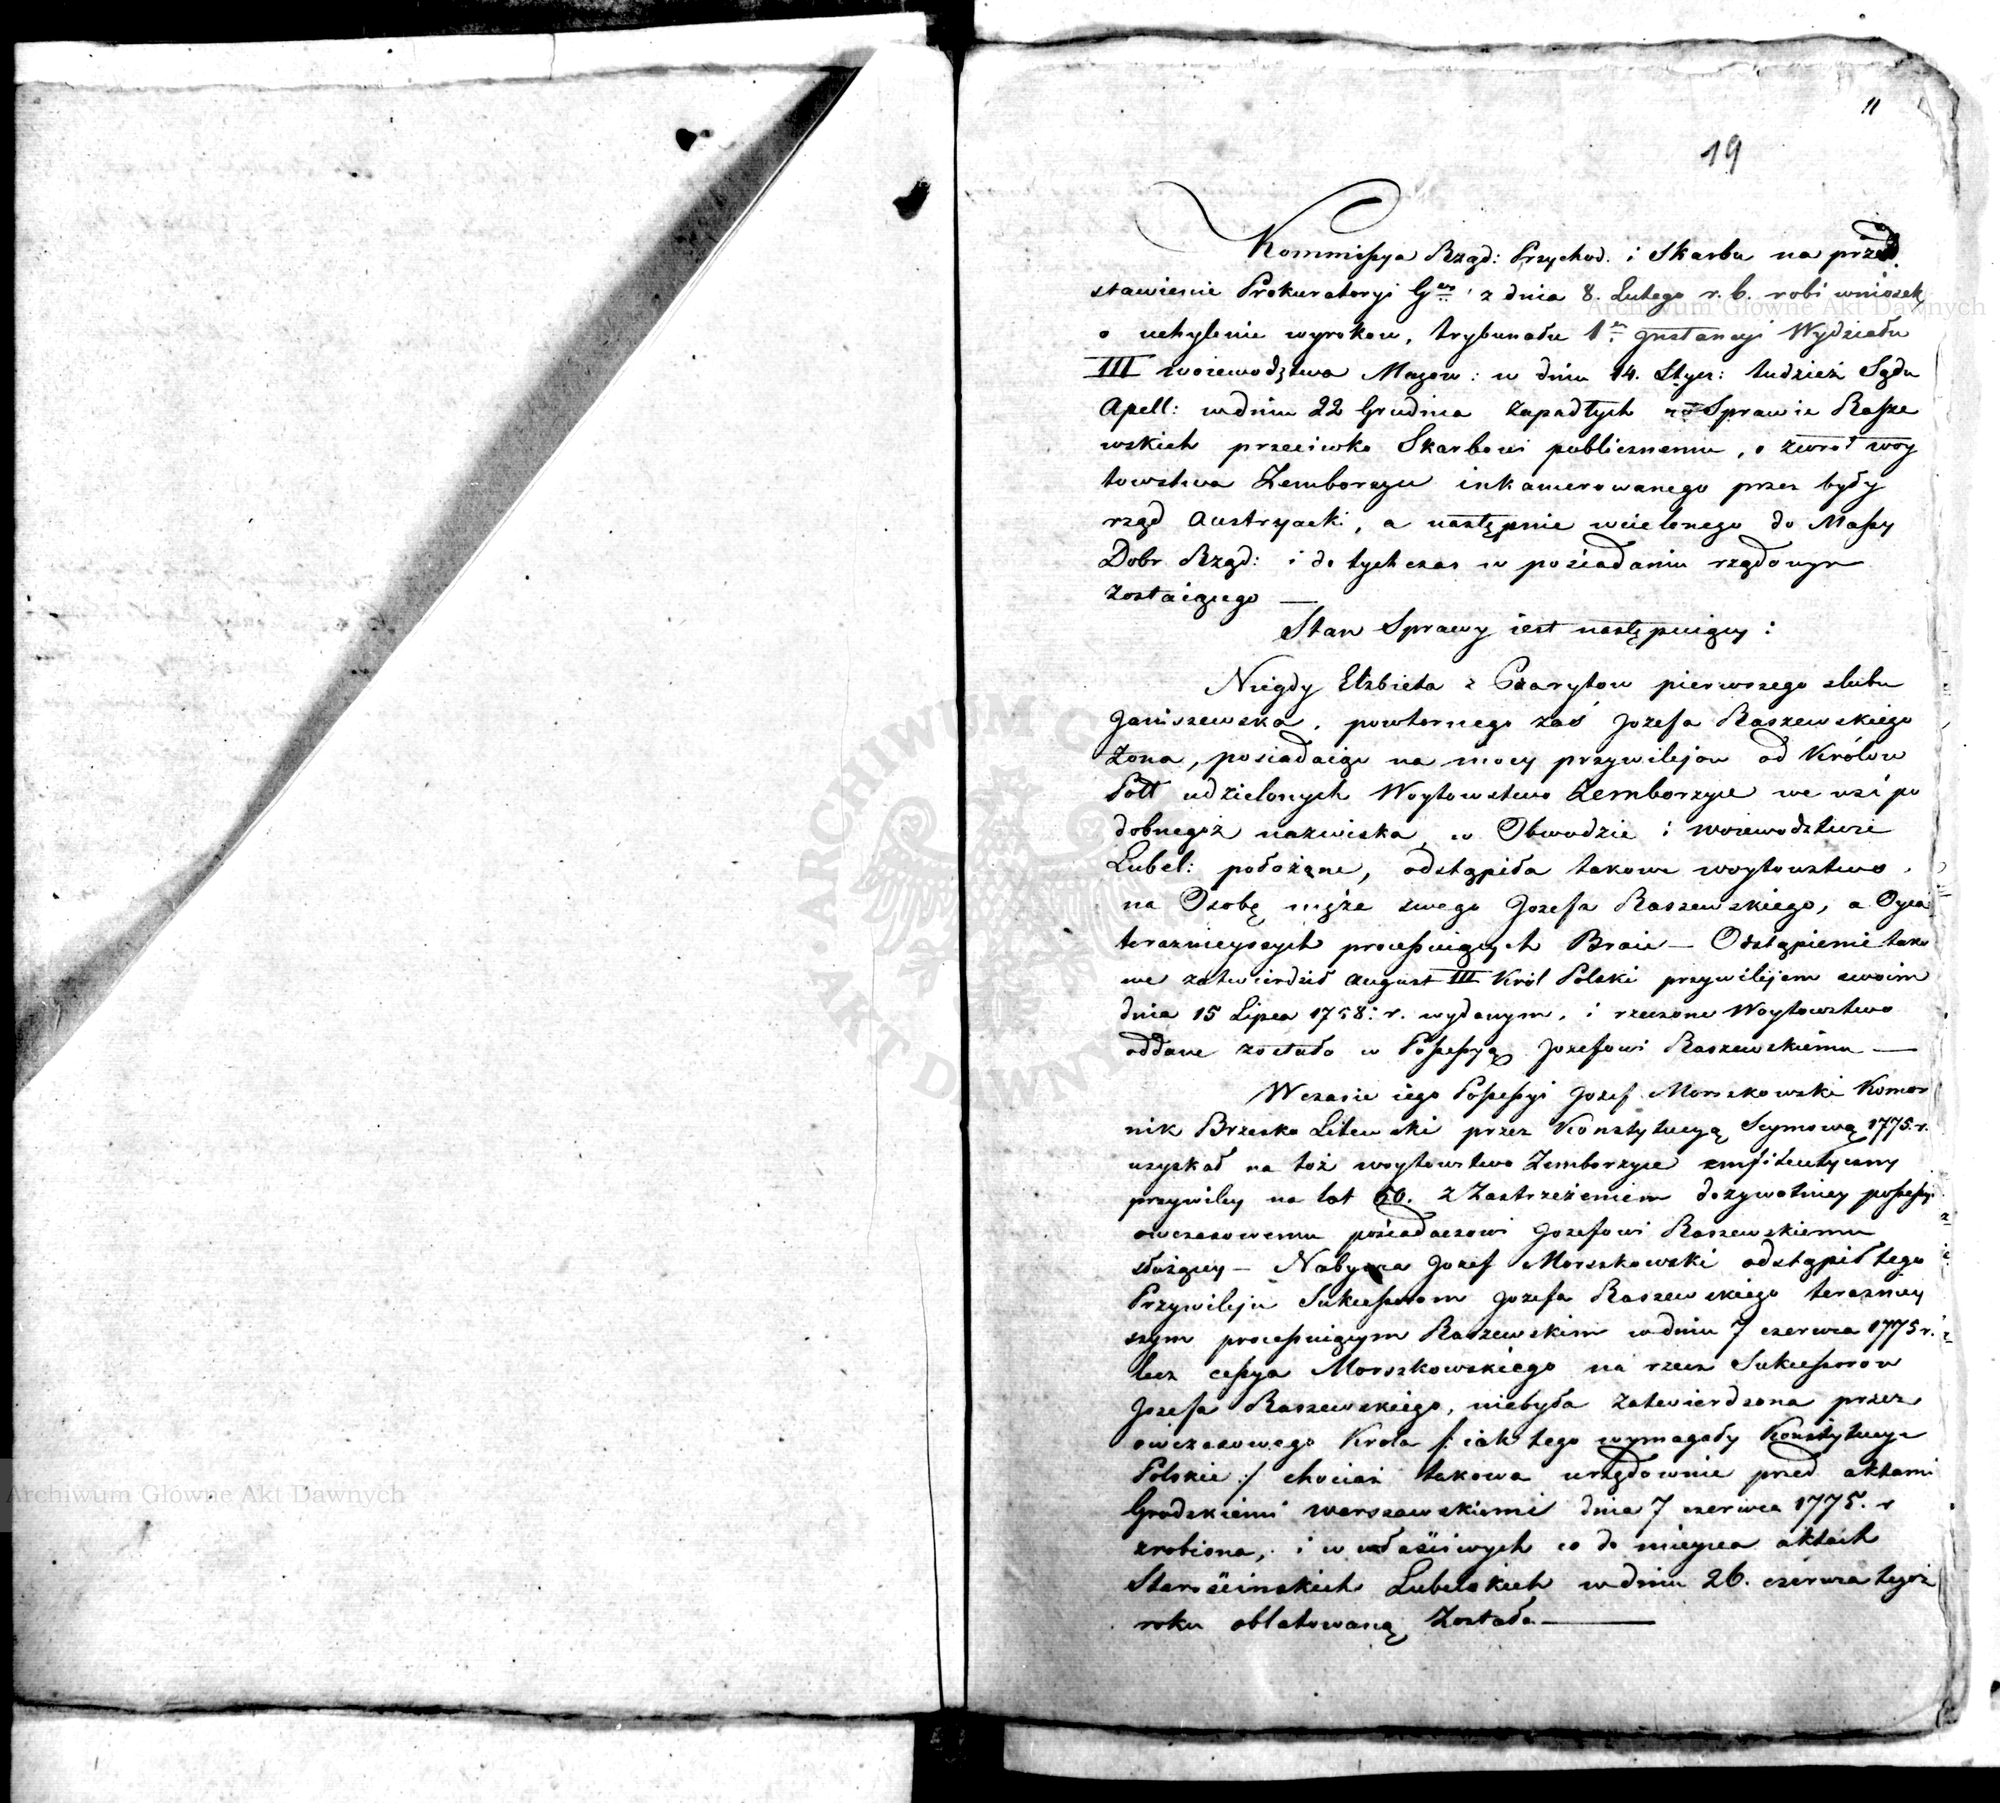 11
19
Kommissya Rząd: Przychod. i Skarbu na przed
stawienie Prokuratoryi Gen z dnia 8. Lutego r. b. robi wniosek
o uchylenie wyrokow, trybunału 1 Instancyi Wydziału
III wojewodztwa Mazow: w dniu 14. Stycz: tudzież Sądu
Apell: w dniu 22 Grudnia zapadłych w Sprawie Rasze
wskich przeciwko Skarbowi publicznemu, o zwrot woy
towstwa Zemborzyce inkamerowanego przez były
rząd Austryacki, a następnie wcielonego do Massy
Dobr Rząd: i do tychczas w posiadaniu rządowym
zostaiącego —
Stan Sprawy iest następuiący:
Niegdy Elżbieta z pierwszego slubu
Janiszewska, powtornego zaś Jozefa Raszewskiego
żona, posiadaiąc na mocy przywilejow od Królow
Poll udzielonych Woytowstwo Zemborzyce we wsi po
dobnegoż nazwiska w Obwodzie i wojewodztwie
Lubel: położone, odstąpiła takowe woytowstwo
na Osobę męża swego Jozefa Raszewskiego, a Oyca
teraznieyszych processuiących Braci — Odstąpienie tako
we zatwierdził August III Król Polski przywilejem swoim
dnia 15 Lipca 1758: r. wydanym, i rzeczone Woytowstwo
oddane zostało w Possessyą Jozefowi Raszewskiemu —
W czasie iego Possessyi Jozef Morszkowski Komor
nik Brzesko Litewski przez Konstytucyą Seymową 1775. r.
uzyskał na toż woytowstwo Zemborzyce emfiteutyczny
przywiley na lat 50. z Zastrzeżeniem dożywotniey possessyi
owczasowemu posiadaczowi Jozefowi Raszewskiemu
słóżącey — Nabywca Jozef Morszkowski odstąpił tego
Przywileju Sukcessorom Jozefa Raszewskiego terazniey
szym processuiącym Raszewskim w dniu 7 czerwca 1775 r.
lecz cessya Morszkowskiego na rzecz Sukcessorow
Jozefa Raszewskiego, niebyła zatwierdzona przez
owczasowego Krola /: iak tego wymagały Konstytucye
Polskie :/ chociaż takowa urzędownie przed aktami
Grodzkiemi warszawskiemi dnia 7 czerwca 1775. r
zrobiona, i w właściwych co do mieysca aktach
Starościnskich Lubelskich w dniu 26. czerwca tegoż
roku oblatowaną Została —